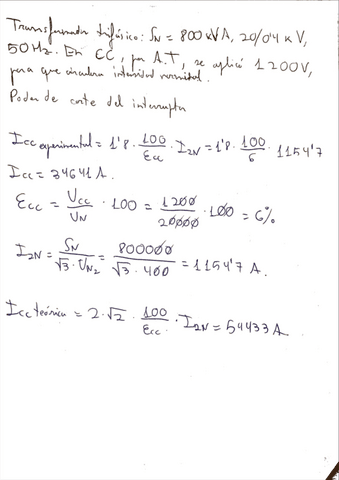 Transformador trifásico: SN = 800 kVA, 20/0'4 kV,
50 Hz. En CC, por A.T, se aplicó 1200V,
para que circulara intensidad nominal.
Poder de corte del interruptor
Icc experimental = 1'8 · 100/Ecc · I2N = 1'8 · 100/6 · 1154'7
Icc = 34641 A.
Ecc = Vcc/VN · 100 = 1200/20000 · 100 = 6%
I2N = SN/√3 · UN2 = 800000/√3 · 400 = 1154'7 A.
Icc teórica = 2·√2 · 100/Ecc · I2N = 54433 A